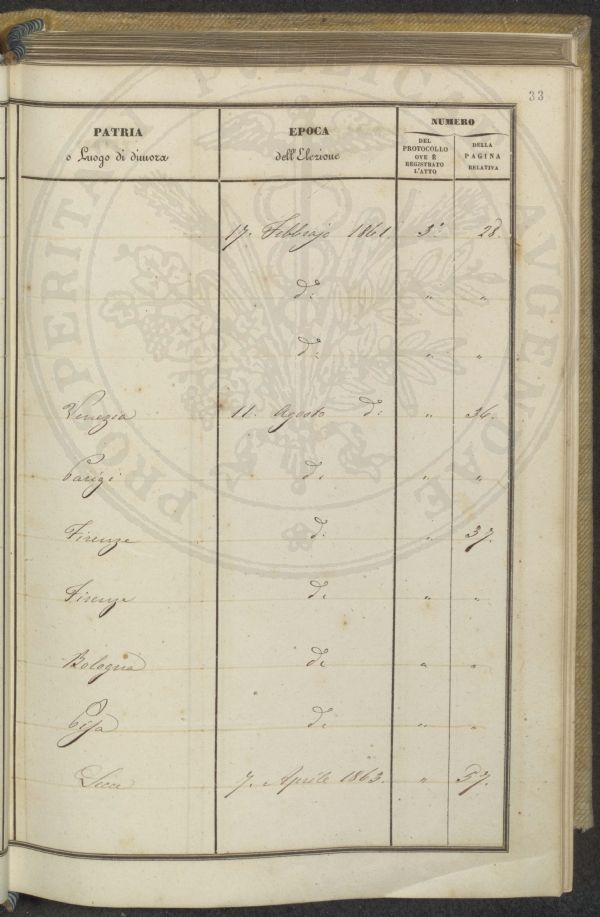 33
PATRIA
o Luogo di dimora
EPOCA
dell'Elezione
NUMERO
DEL
PROTOCOLLO
OVE È
REGISTRATO
L'ATTO
DELLA
PAGINA
RELATIVA
17. Febbrajo 1861. 3° 28.
d: " "
d: " "
Venezia 11. Agosto d: " 36.
Parigi d: " "
Firenze d: " 37.
Firenze d: " "
Bologna d: " "
Pisa d: " "
7. Aprile 1863. " 57.
PROSPERITATI PUBLICAE AUGENDAE